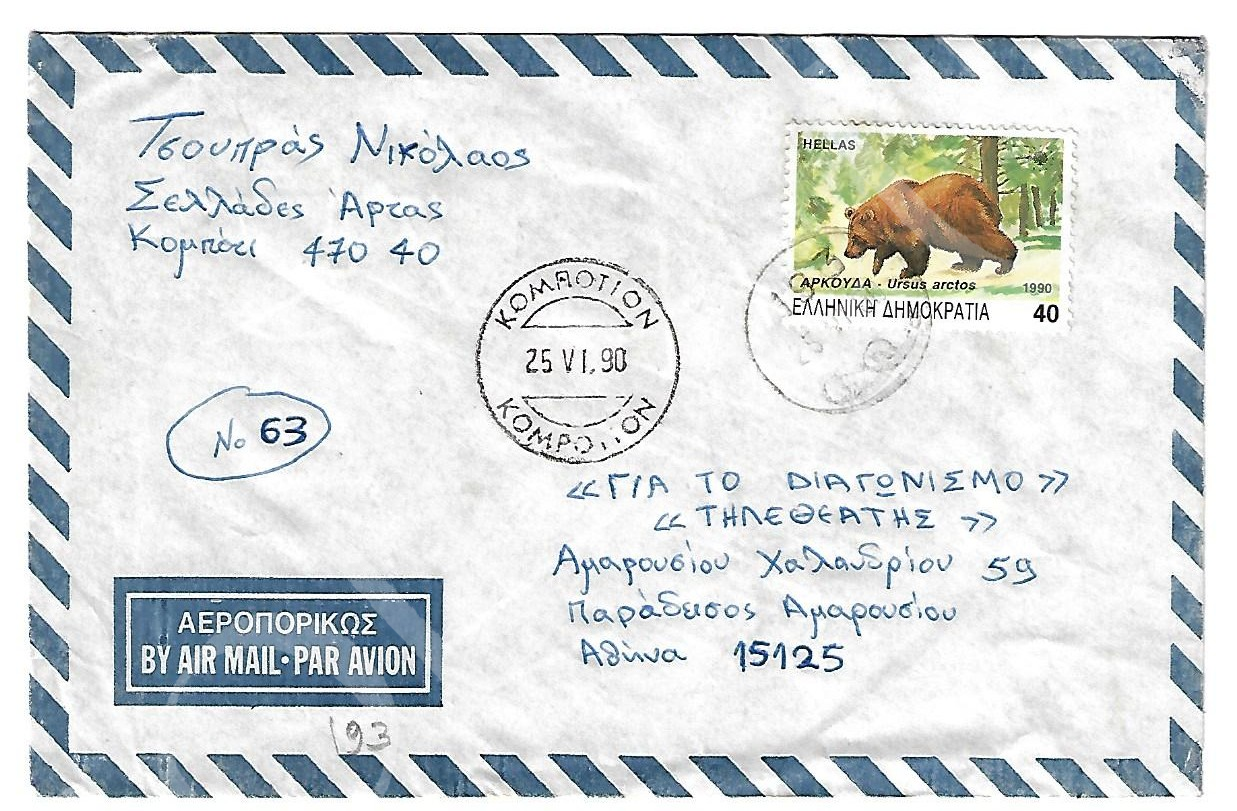 Τσουπράς Νικόλαος
Σελλάδες Άρτας
Κομπότι 470 40
HELLAS
ΑΡΚΟΥΔΑ - Ursus arctos 1990
ΕΛΛΗΝΙΚΗ ΔΗΜΟΚΡΑΤΙΑ 40
ΚΟΜΠΟΤΙΟΝ
25 VI. 90
No 63
<<ΓΙΑ ΤΟ ΔΙΑΓΩΝΙΣΜΟ>>
<<ΤΗΛΕΘΕΑΤΗΣ>>
Αμαρουσίου Χαλανδρίου 59
Παράδεισος Αμαρουσίου
Αθήνα 15125
ΑΕΡΟΠΟΡΙΚΩΣ
BY AIR MAIL·PAR AVION
93